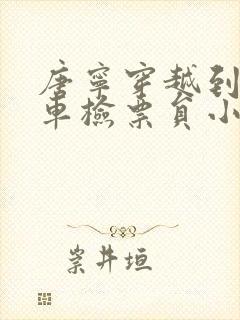 唐寧穿越到
車檢票員小
崇井垣